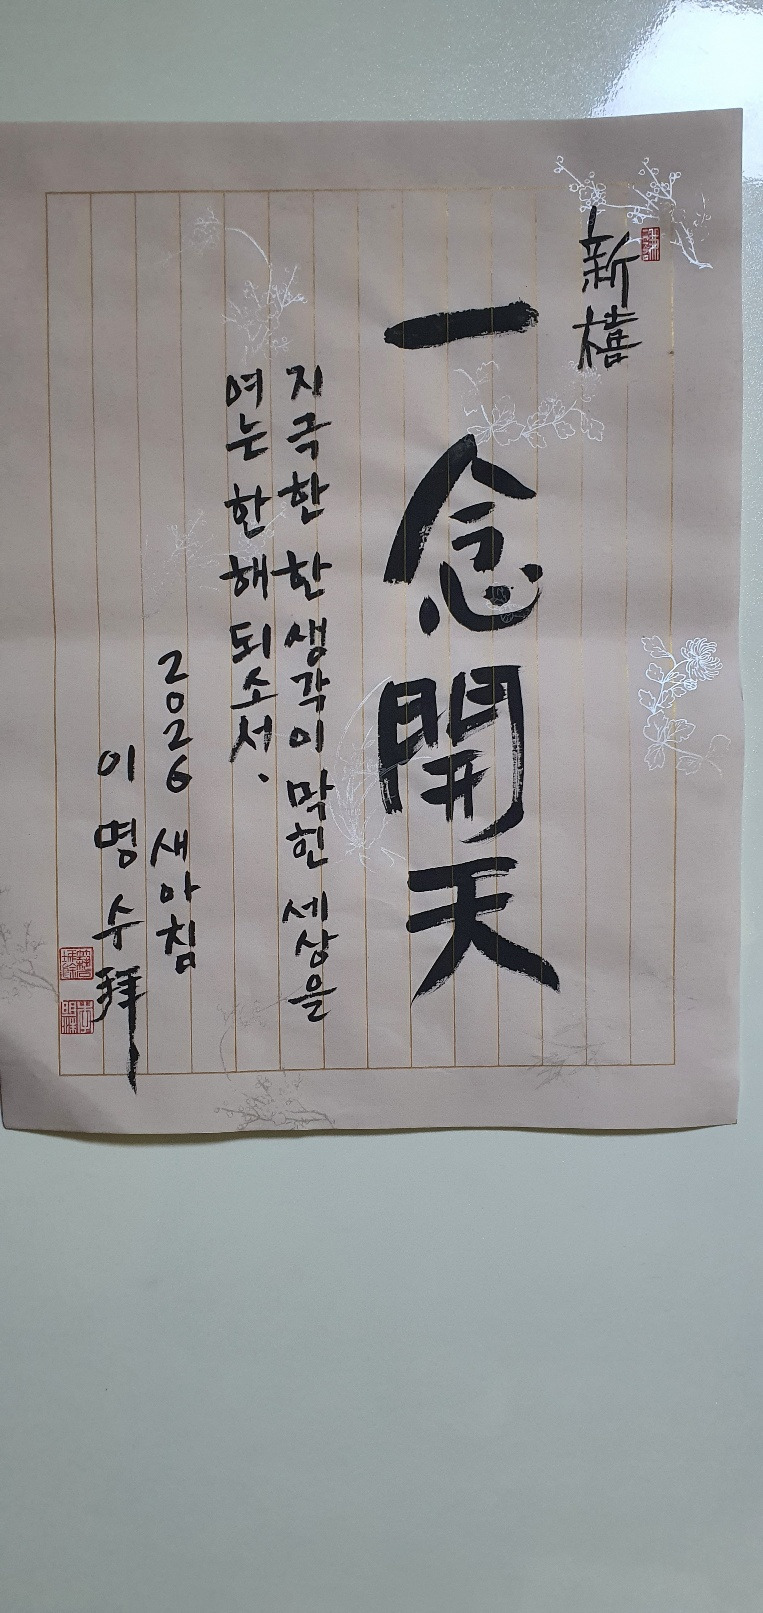 新禧
一念開天
지극한 한 생각이 막힌 세상을
여는 한 해 되소서.
2026 새아침
이명수 拜